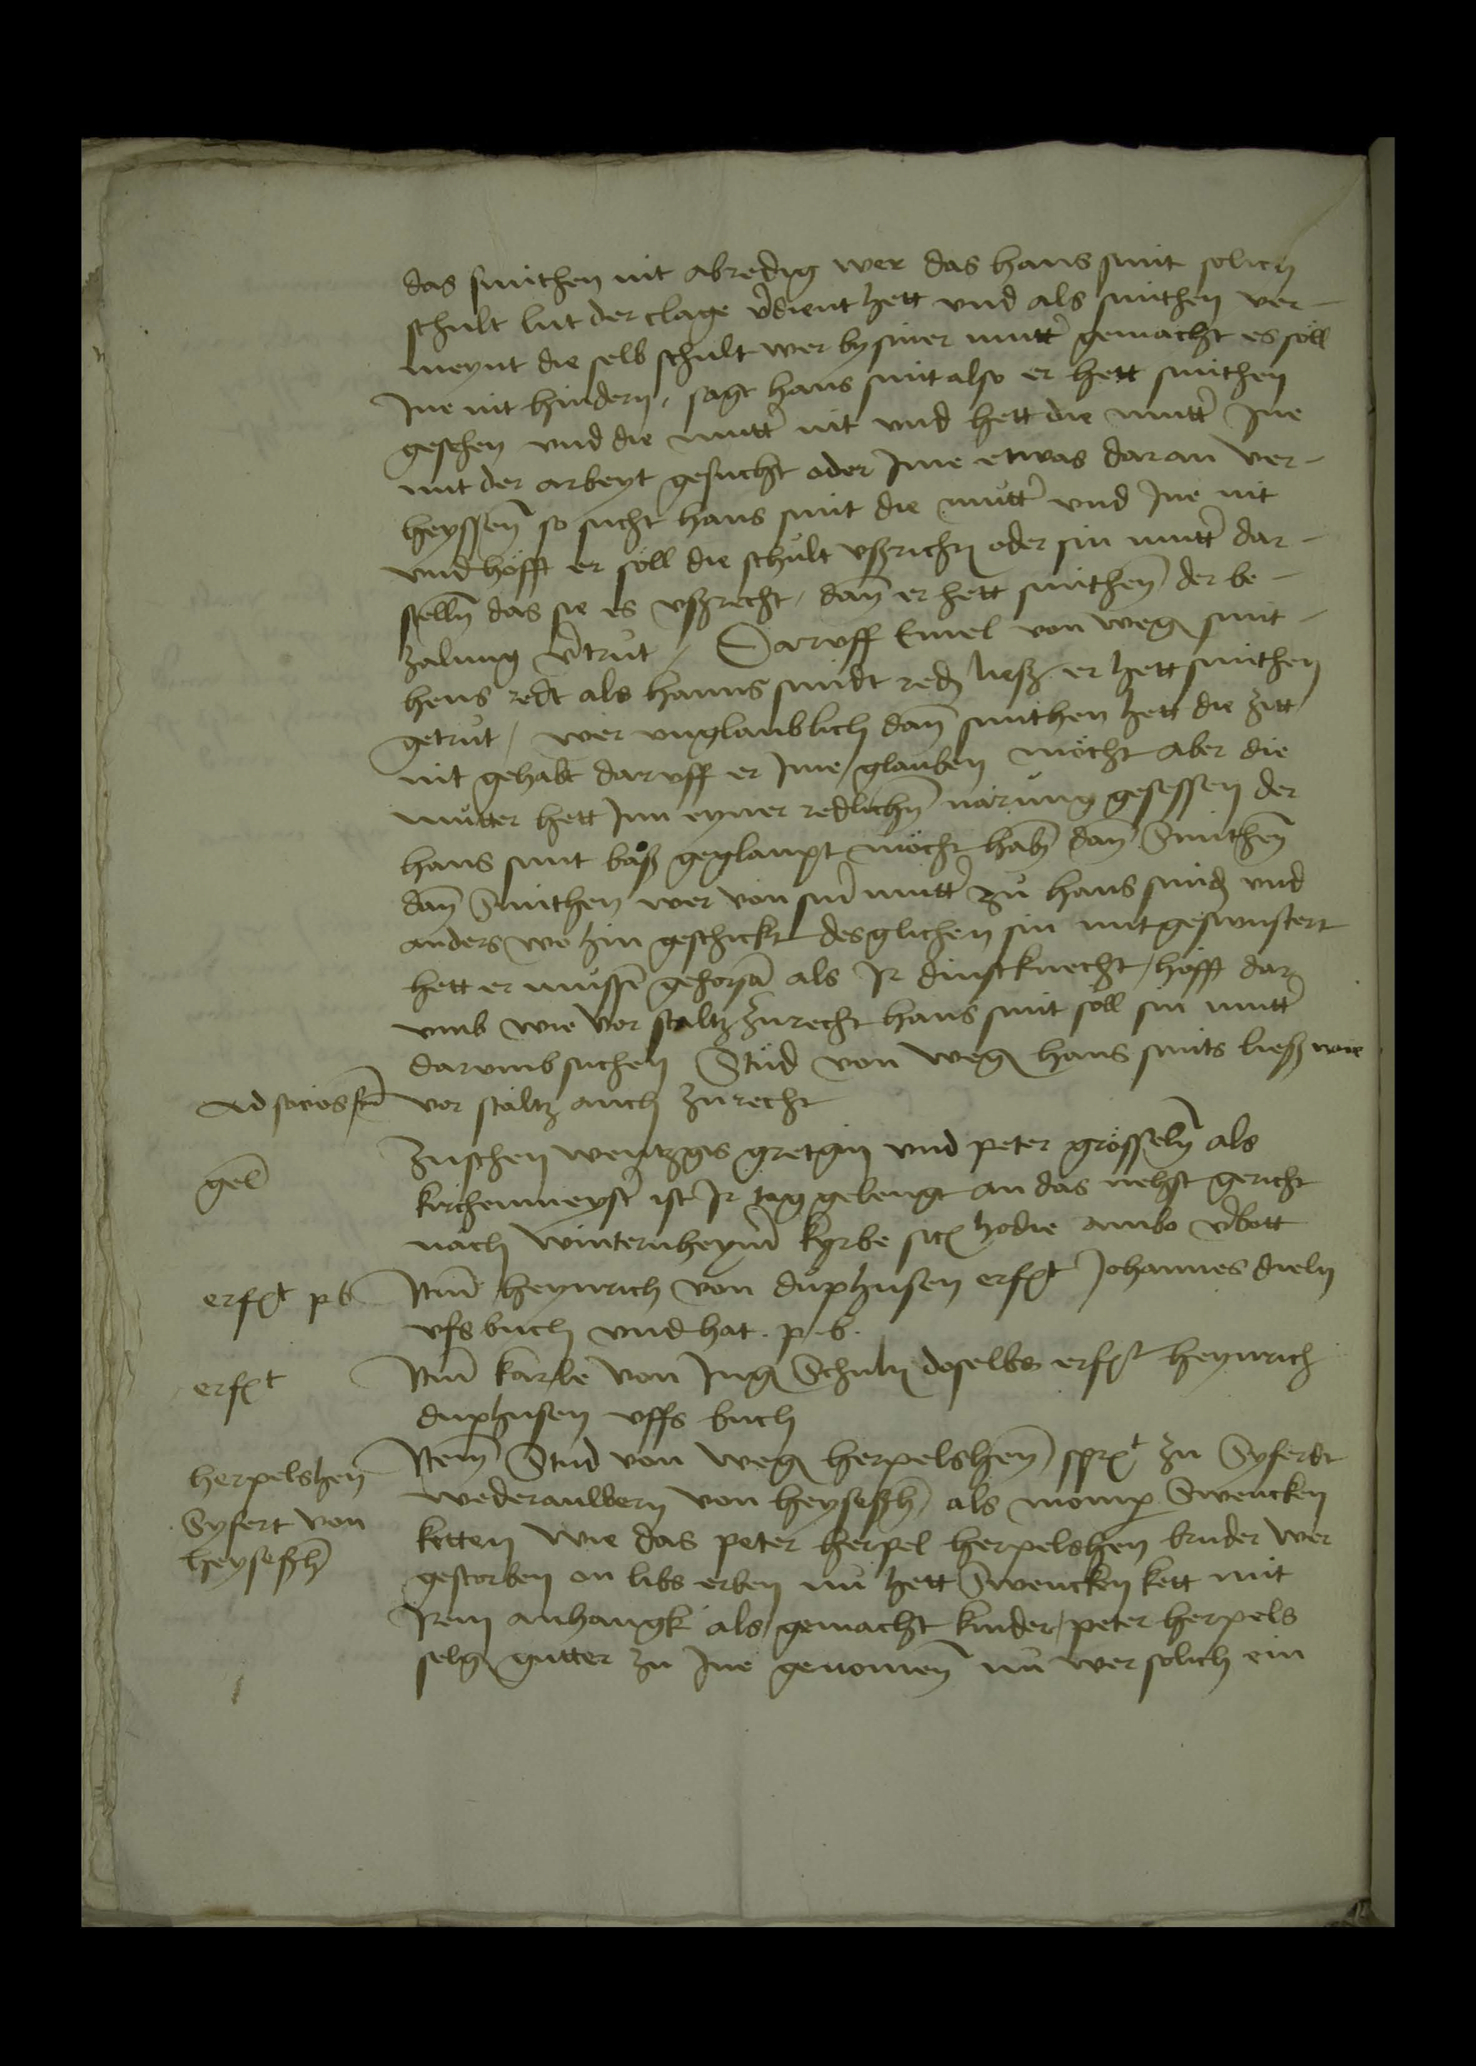 das smithen nit abredig wer das hans smit solich
schult lut der clage v̉dient hett vnd als smithen ver-
meynt die selb schult wer by siner mutt̉ gemacht es söll
Ine nit hindern, sagt hans smit also er hett smithen
gesehen vnd die mutt̉ nit vnd hett die mutt̉ Ine
mit der arbeyt gesucht oder Ime etwas daran ver-
heyssen̄ so sucht hans smit die mutt̉ vnd Ine nit
vnd höfft er söll die schult vßrichtn̄ oder sin mutt̉ dar-
stelln̄ das sie es vßrecht, dan̄ er hett smithen̄ der be-
zalung v̉trut / Daruff Emel von wegn̄ smit-
hens redt als hanns smidt redn̄ ließ er hett smithen
getrut, wer vnglaublich dan̄ smithen hett die zitt
nit gehabt daruff er Ime glauben möcht aber die
mutter hett Inn eyner redlichn̄ narung gesessen der
hans smit baß geglaupt möcht habn̄ dan̄ Smithen̄
dan̄ Smithen wer von sin̉ mutt̉ zu hans smidn̄ vnd
anders wo hin geschickt desglichen sin mitgeswistert
hett er mussn̄ gehorsā als Ir dinstknecht, höfft dar
vmb wie vor staltz zurecht hans smit söll sin mutt̉
darumb suchen Stud von wegn̄ hans smits ließ wie
Ad socios vor staltz auch zurecht
Zuschen wentzgis gretgin vnd peter grösseln̄ als
gel̄ kirchenmeyst̉ ist Ir tag gelengt an das nehst gericht
nach winternheym̉ kyrbe sic hodie ambo v̉bott
erfⷦt p b Itm̄ heynrich von duphusen erfⷦt Johannes dieln
vfs buch vnd hat . p . b .
erfⷦt Itm̄ karle von Ingn̄ Schultn̄ doselbs erfⷦt heynrich
duphusen vffs buch
herpelshen̄ Item̄ Stud von wegn̄ herpelshen̄ sprⷦt zu Syferdt
Syfert von wederanldern von heyseßhn̄ als momp Swencken
heyseßhn̄ ketten wie das peter herpel herpelshen bruder wer
gestorben on libs erben nu hett Swencken kett mit
Irem anhangk als gemacht kinder, peter herpels
selgn̄ gutter zu Ine genomen̄ nu wer solich ein